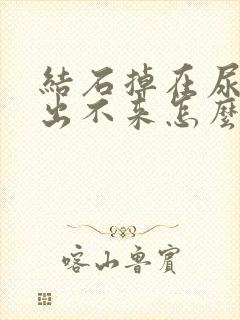 結石掉在尿
出不来怎麽
喀山鲁賓